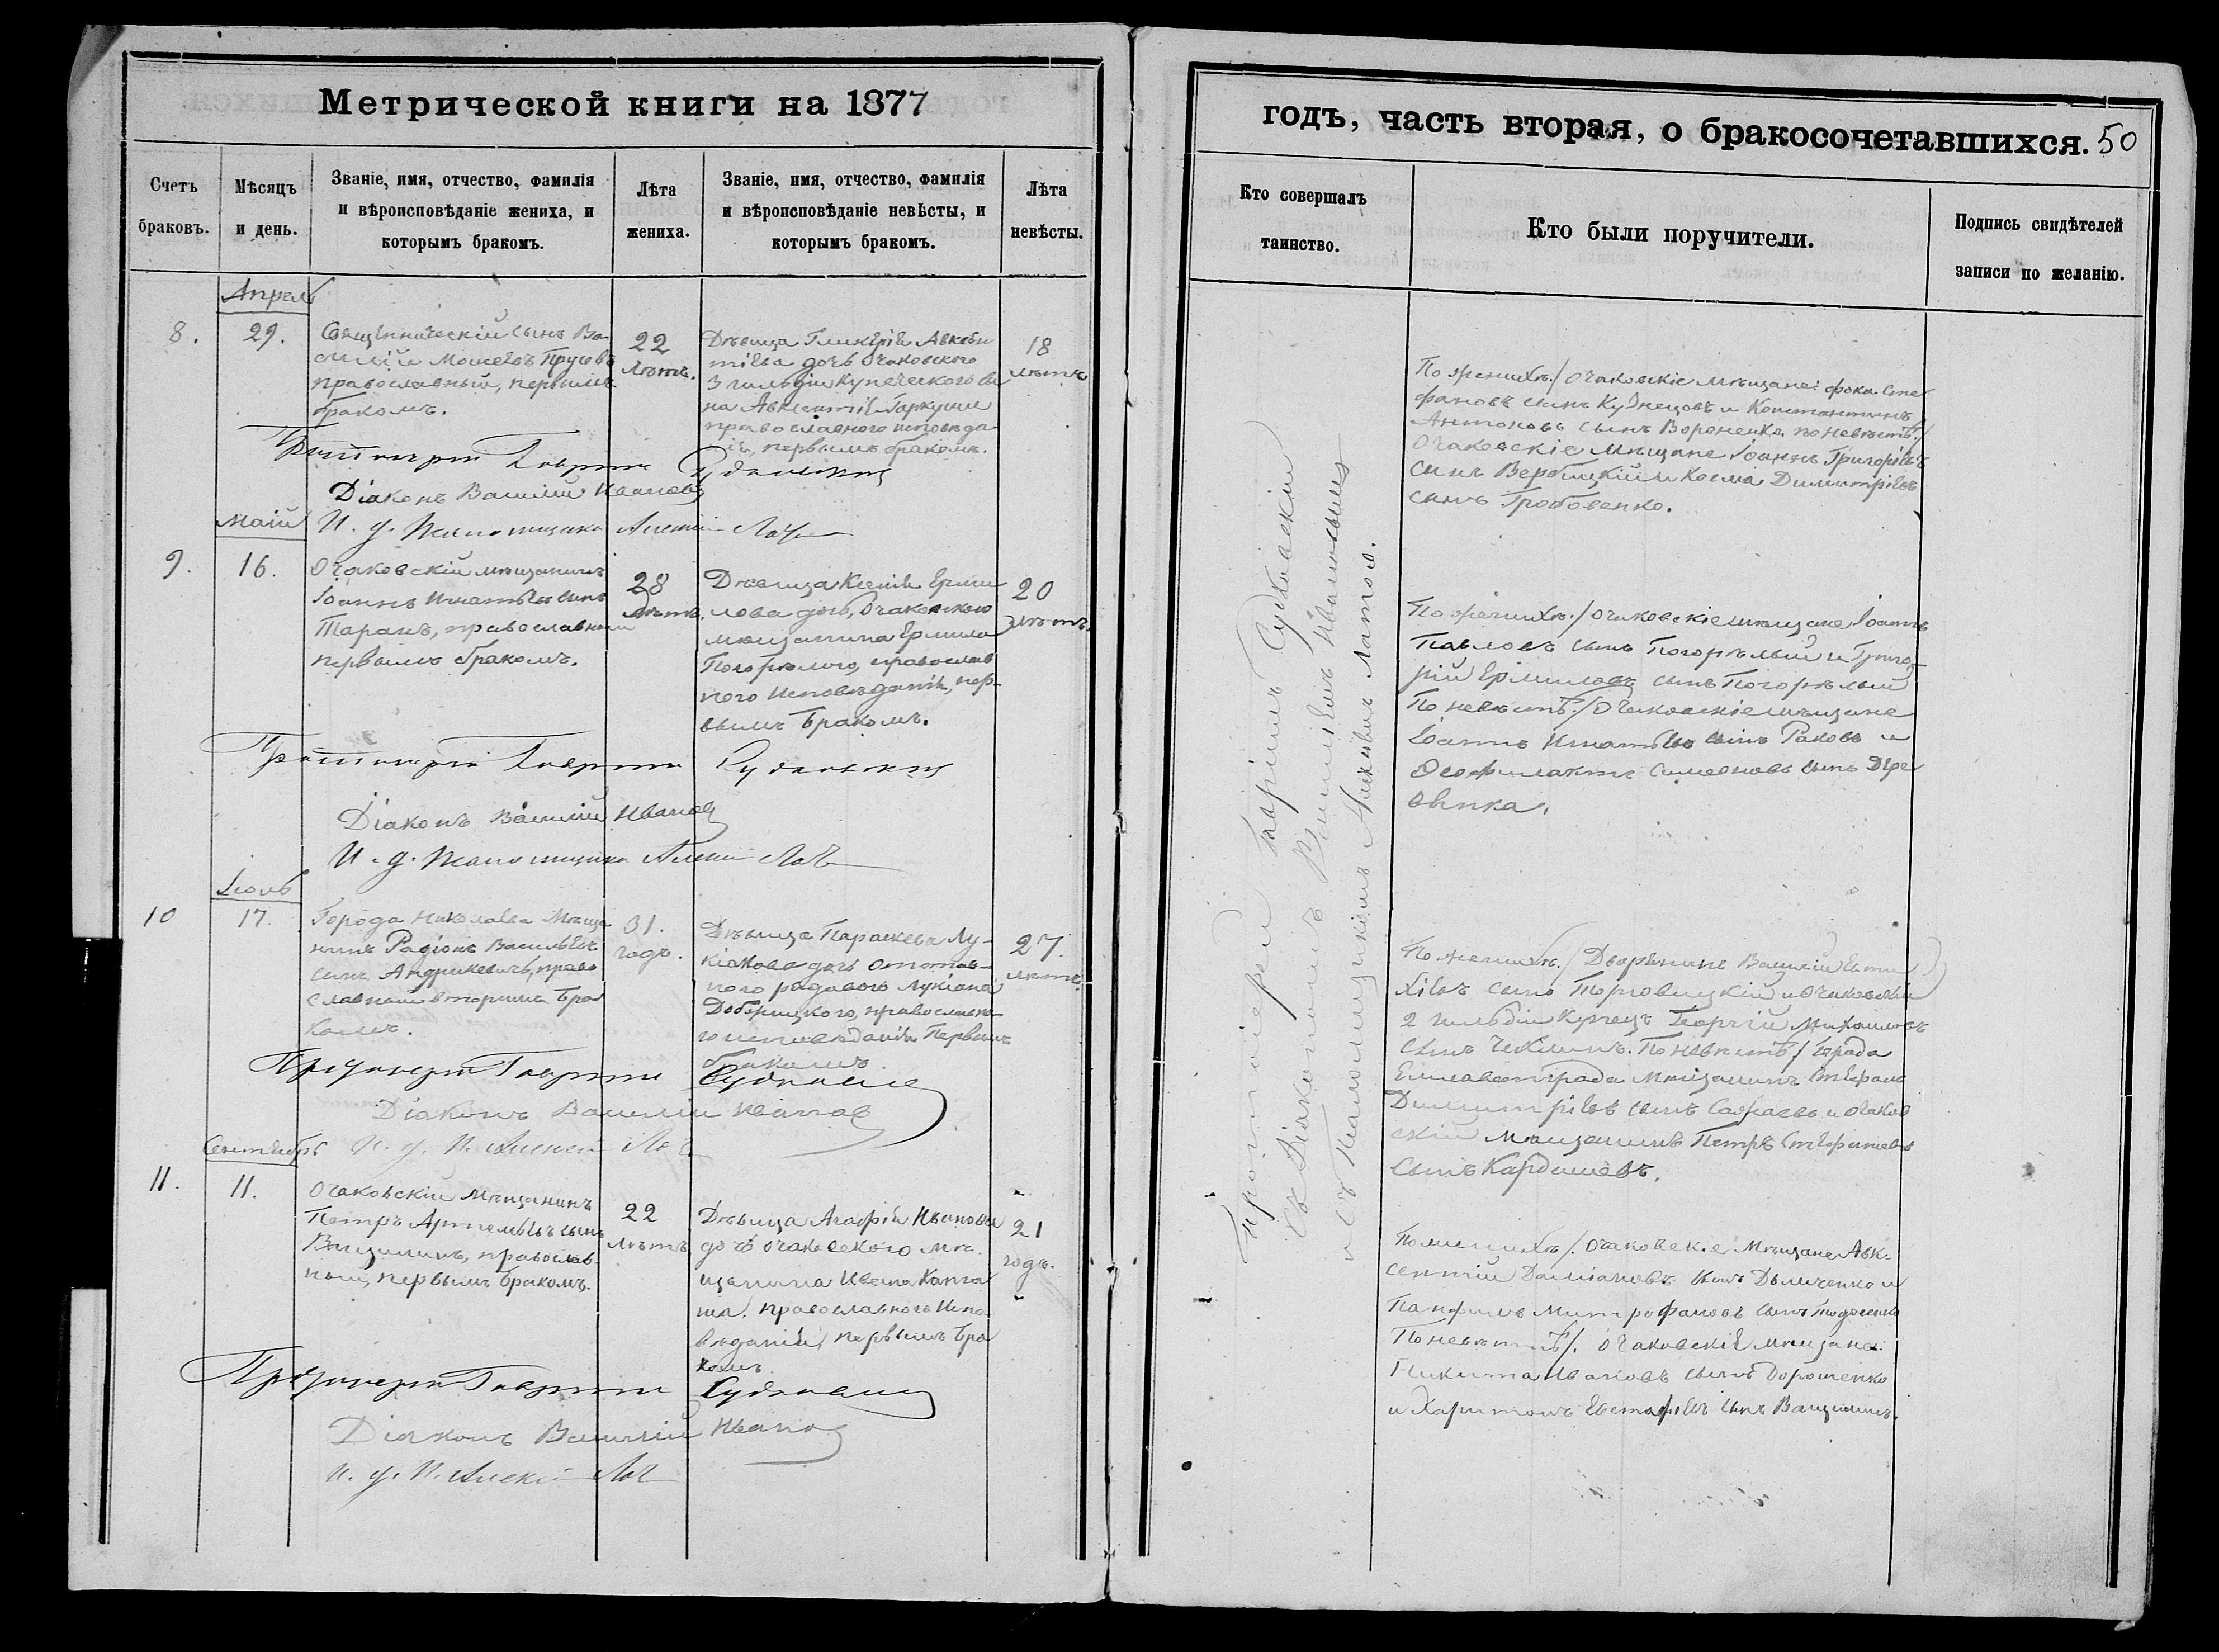 Метрической книги на 1877
Счетъ
браковъ.
Мѣсяцъ
и день.
Званіе, имя, отчество, фамилія
и вѣроисповѣданіе жениха, и
которымъ бракомъ.
Лѣта
жениха.
Званіе, имя, отчество, фамилія
и вѣроисповѣданіе невѣсты, и
которымъ бракомъ.
Лѣта
невѣсты.
Апрель
8.
29.
Священническій сынъ Ва-
силій Моисеевъ
православный, первымъ
бракомъ.
22
лѣтъ.
Дѣвица Гликерія Авксен
тіева дочь Очаковского
3 гильдіи купеческого сы
на Авксентія Гаркуши
православного исповѣда
ія, первымъ бракомъ.
18
лѣтъ
Протоіерей Гавріилъ Судковскій
Діаконъ Василій Ивановъ
И. д. Псаломщика Алексій
Маій
9.
16.
Очаковскій мѣщанинъ
Іоаннъ Игнатьевъ сынъ
Таранъ, православный
первымъ бракомъ.
28
лѣтъ.
Дѣвица Ксенія Ерми
лова дочь, Очаковского
мѣщанина Ермила
Погорѣлого, православ
ного исповѣданія, пер-
вымъ бракомъ.
20
лѣтъ.
Протоіерей Гавріилъ Судковскій
Діаконъ Василій Ивановъ
И. д. Псаломщика Алексій
Іюль
10
17.
Города Николаева Мѣща
нинъ Радіонъ Васильевъ
сынъ Андрикевичъ, право
славный вторымъ бра
комъ.
31.
годъ.
Дѣвица Параскева Лу-
кіанова дочь отстав-
ного рядового Лукіана
православно-
го исповѣданія первымъ
бракомъ
27.
лѣтъ.
Протоіерей Гавріилъ Судковскій
Діаконъ Василій Ивановъ
И. д. П. Алексій
Сентябрь
11.
11.
Очаковскій Мѣщанинъ
Петръ Артемьевъ сынъ
православ-
ный, первымъ бракомъ.
22
лѣтъ
Дѣвица Агафія Иванова
дочь очаковского мѣ-
щанина Ивана
православного испо-
вѣданія, первымъ бра
комъ
21
годъ.
Протоіерей Гавріилъ Судковскій
Діаконъ Василій Ивановъ
И. д. П. Алексій
годъ, часть вторая, о бракосочетавшихся. 50
Кто совершалъ
таинство.
Кто были поручители.
Подпись свидѣтелей
записи по желанію.
Протоіерей Гавріилъ Судковскій
съ Діакономъ Василіемъ Ивановымъ
и съ Псаломщикомъ
По женихѣ / Очаковскіе мѣщане: Фока Сте
фановъ сынъ Кузнецовъ и Константинъ
Антоновъ сынъ Вороненко. по невѣстѣ /
Очаковскіе мѣщане Іоаннъ Григорьевъ
сынъ Вербицкій и Косма Димитріевъ
сынъ Гробовенко.
По женихѣ. / Очаковскіе мѣщане Іоаннъ
Павловъ сынъ Погорѣлый и Григо-
рій Ермиловъ сынъ Погорѣлый
По невѣстѣ. / Очаковскіе мѣщане
Іоаннъ Игнатьевъ сынъ Раковъ и
Ѳеофилактъ Симеоновъ сынъ
По женихѣ. / Дворянинъ Василій Евти
хіевъ сынъ Терновицкій и Очаковскій
2 гильдіи купецъ Георгій Михаиловъ
сынъ По невѣстѣ / города
Елисаветграда мѣщанинъ Стефанъ
Димитріевъ сынъ и Очаков
скій мѣщанинъ Петръ Стефановъ
сынъ Кардашевъ.
По женихѣ /. Очаковскіе Мѣщане Авк-
сентій Даміановъ сынъ и
Панфилъ Митрофановъ сынъ
По невѣстѣ /. Очаковскіе мѣщане:
Никита Ивановъ сынъ Дорошенко
и Харитонъ Евстафіевъ сынъ